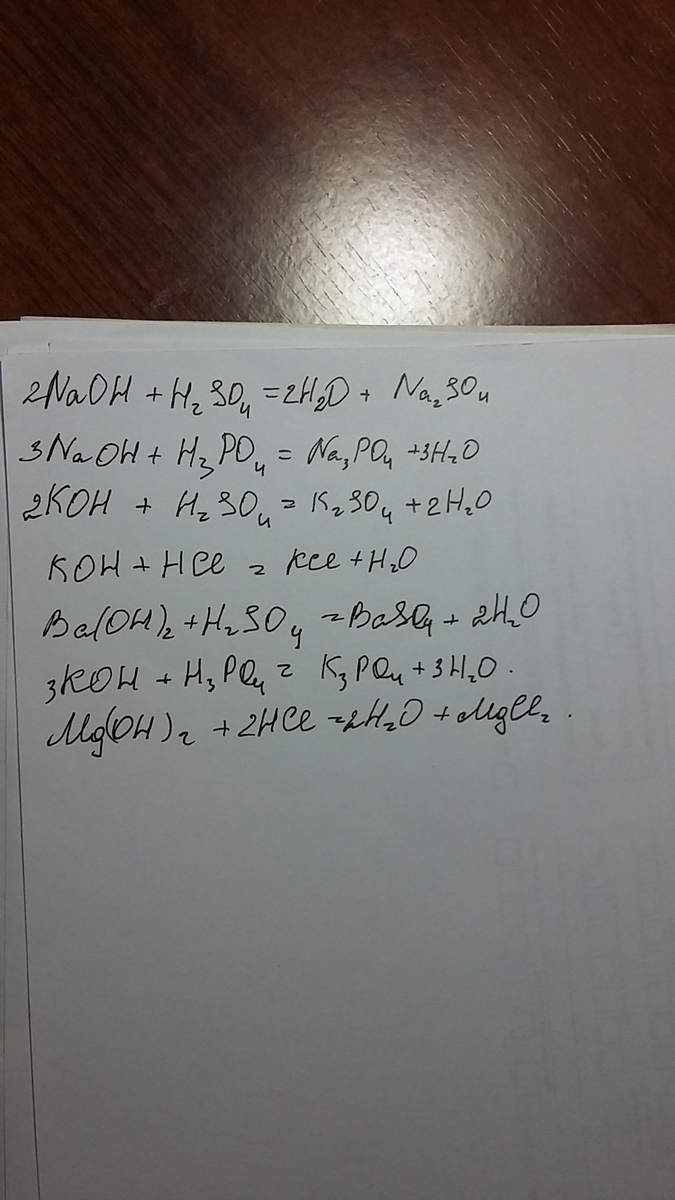 2NaOH + H₂SO₄ = 2H₂O + Na₂SO₄
3NaOH + H₃PO₄ = Na₃PO₄ + 3H₂O
2KOH + H₂SO₄ = K₂SO₄ + 2H₂O
KOH + HCl = KCl + H₂O
Ba(OH)₂ + H₂SO₄ = BaSO₄ + 2H₂O
3KOH + H₃PO₄ = K₃PO₄ + 3H₂O.
Mg(OH)₂ + 2HCl = 2H₂O + MgCl₂.